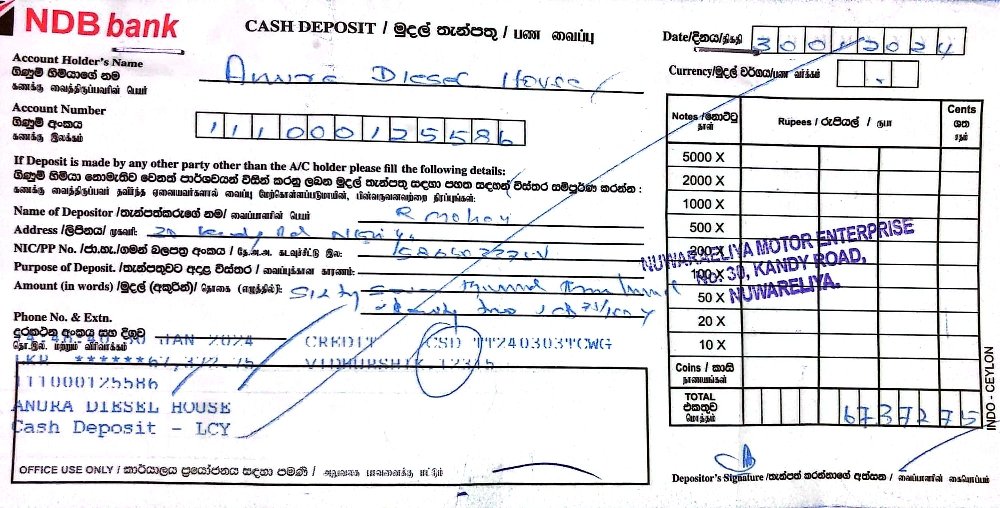 NDB bank
CASH DEPOSIT / මුදල් තැන්පතු / பண வைப்பு
Date/දිනය/திகதி 30 01 2024
Account Holder's Name
ගිණුම් හිමියාගේ නම Anura Diesel House
கணக்கு வைத்திருப்பவரின் பெயர்
Currency/මුදල් වර්ගය/பண வர்க்கம்
Account Number
ගිණුම් අංකය 111000125586
கணக்கு இலக்கம்
Notes /නොට්ටු நாள் Rupees / රුපියල් / ரூபா Cents ශත சதம்
If Deposit is made by any other party other than the A/C holder please fill the following details:
ගිණුම් හිමියා නොමැතිව වෙනත් පාර්ශවයන් විසින් කරනු ලබන මුදල් තැන්පතු සඳහා පහත සඳහන් විස්තර සම්පූර්ණ කරන්න :
கணக்கு வைத்திருப்பவர் தவிர்ந்த ஏனையவர்களால் வைப்பு மேற்கொள்ளப்படுமாயின், பின்வருவனவற்றை நிரப்புங்கள்:
Name of Depositor /තැන්පත්කරුගේ නම/ வைப்பாளரின் பெயர் R
Address /ලිපිනය/ முகவரி:
NIC/PP No. /ජා.හැ./ගමන් බලපත්‍ර අංකය / தே.அ.அ. கடவுச்சீட்டு இல:
Purpose of Deposit. /තැන්පතුවට අදාළ විස්තර / வைப்புக்கான காரணம்:
Amount (in words) /මුදල් (අකුරින්)/ தொகை (எழுத்தில்): Sixty Seven
5000 X
2000 X
1000 X
500 X
200 X
100 X
50 X
20 X
10 X
NUWARAELIYA MOTOR ENTERPRISE
NO. 30, KANDY ROAD,
NUWARELIYA.
Phone No. & Extn.
දුරකථන අංකය සහ දිගුව
தொ.இல. மற்றும் விரிவாக்கம்
30 JAN 2024 CREDIT CSD TT240303TCWG
LKR ******67,372.75
111000125586
ANURA DIESEL HOUSE
Cash Deposit - LCY
Coins / කාසි
நாணயங்கள்
TOTAL
එකතුව
மொத்தம் 67372 75
OFFICE USE ONLY / කාර්යාලය ප්‍රයෝජනය සඳහා පමණි / அலுவலக பாவனைக்கு மட்டும்
Depositor's Signature /තැන්පත් කරන්නාගේ අත්සන / வைப்பாளரின் கையொப்பம்
INDO - CEYLON